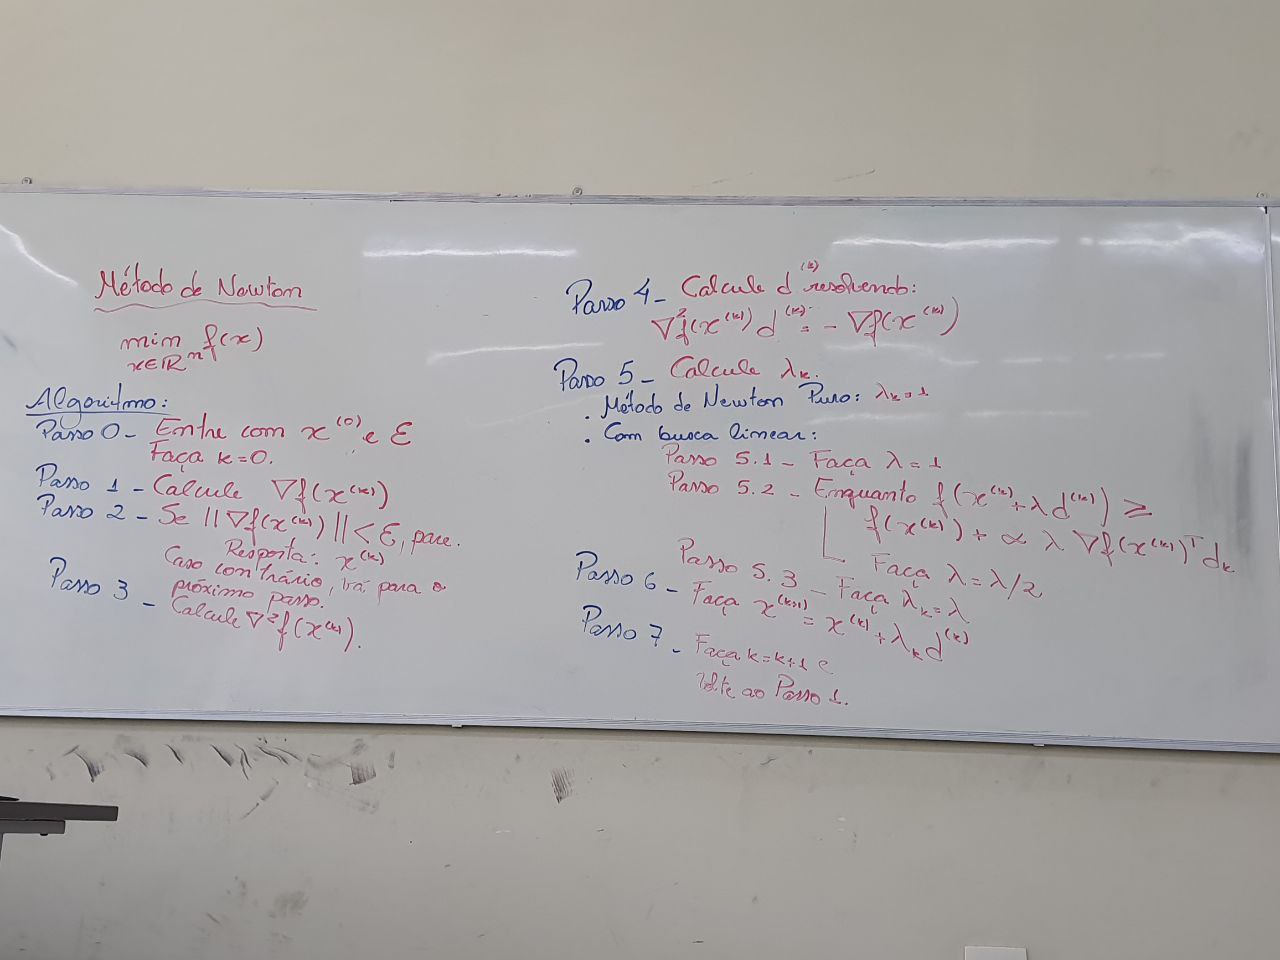 Método de Newton
min f(x)
x∈ℝⁿ
Algoritmo:
Passo 0 - Entre com x⁽⁰⁾ e ε
Faça k=0.
Passo 1 - Calcule ∇f(x⁽ᵏ⁾)
Passo 2 - Se ||∇f(x⁽ᵏ⁾)|| < ε, pare.
Resposta: x⁽ᵏ⁾
Caso contrário, vá para o
próximo passo.
Passo 3 - Calcule ∇²f(x⁽ᵏ⁾).
Passo 4 - Calcule d⁽ᵏ⁾ resolvendo:
∇²f(x⁽ᵏ⁾) d⁽ᵏ⁾ = - ∇f(x⁽ᵏ⁾)
Passo 5 - Calcule λₖ.
. Método de Newton Puro: λₖ = 1
. Com busca linear:
Passo 5.1 - Faça λ = 1
Passo 5.2 - Enquanto f(x⁽ᵏ⁾ + λ d⁽ᵏ⁾) ≥
f(x⁽ᵏ⁾) + α λ ∇f(x⁽ᵏ⁾)ᵀ dₖ
Faça λ = λ/2
Passo 5.3 - Faça λₖ = λ
Passo 6 - Faça x⁽ᵏ⁺¹⁾ = x⁽ᵏ⁾ + λₖ d⁽ᵏ⁾
Passo 7 - Faça k = k+1 e
Volte ao Passo 1.